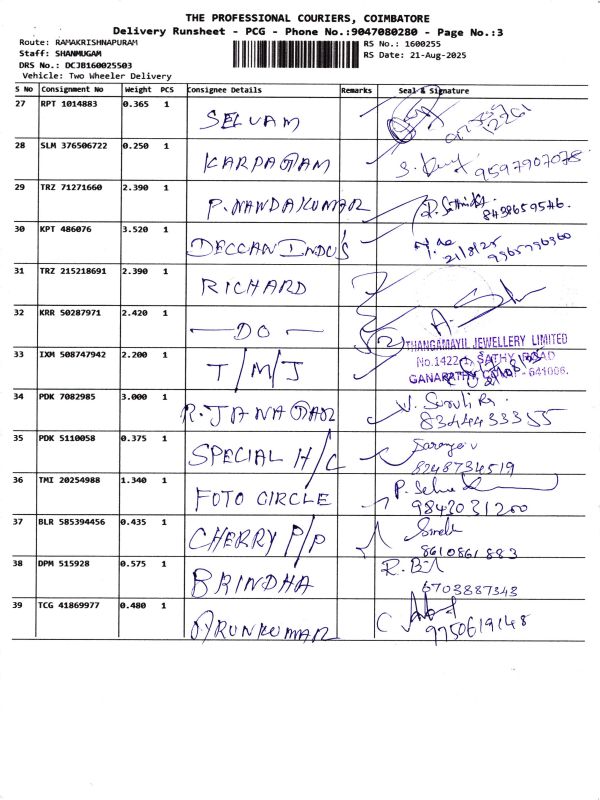 THE PROFESSIONAL COURIERS, COIMBATORE
Delivery Runsheet - PCG - Phone No.:9047080280 - Page No.:3
Route: RAMAKRISHNAPURAM
Staff: SHANMUGAM
DRS No.: DCJB160025503
Vehicle: Two Wheeler Delivery
RS No.: 1600255
RS Date: 21-Aug-2025
S No Consignment No Weight PCS Consignee Details Remarks Seal & Signature
27 RPT 1014883 0.365 1 SELVAM
28 SLM 376506722 0.250 1 KARPAGAM 9597907078
29 TRZ 71271660 2.390 1 P.NANDAKUMAR 8438659546.
30 KPT 486076 3.520 1 DECCAN INDU'S 21/8/25 9965796960
31 TRZ 215218691 2.390 1 RICHARD
32 KRR 50287971 2.420 1 —DO—
33 IXM 508747942 2.200 1 T/M/J
THANGAMAYIL JEWELLERY LIMITED
No.1422 SATHY ROAD
641006.
34 PDK 7082985 3.000 1 R.JANAGAR 8344433355
35 PDK 5110058 0.375 1 SPECIAL H/C 8248734519
36 TMI 20254988 1.340 1 FOTO CIRCLE 9843031200
37 BLR 585394456 0.435 1 CHERRY P/P 8610861883
38 DPM 515928 0.575 1 BRINDHA 6703887343
39 TCG 41869977 0.480 1 ARUNKUMAR 9750619148